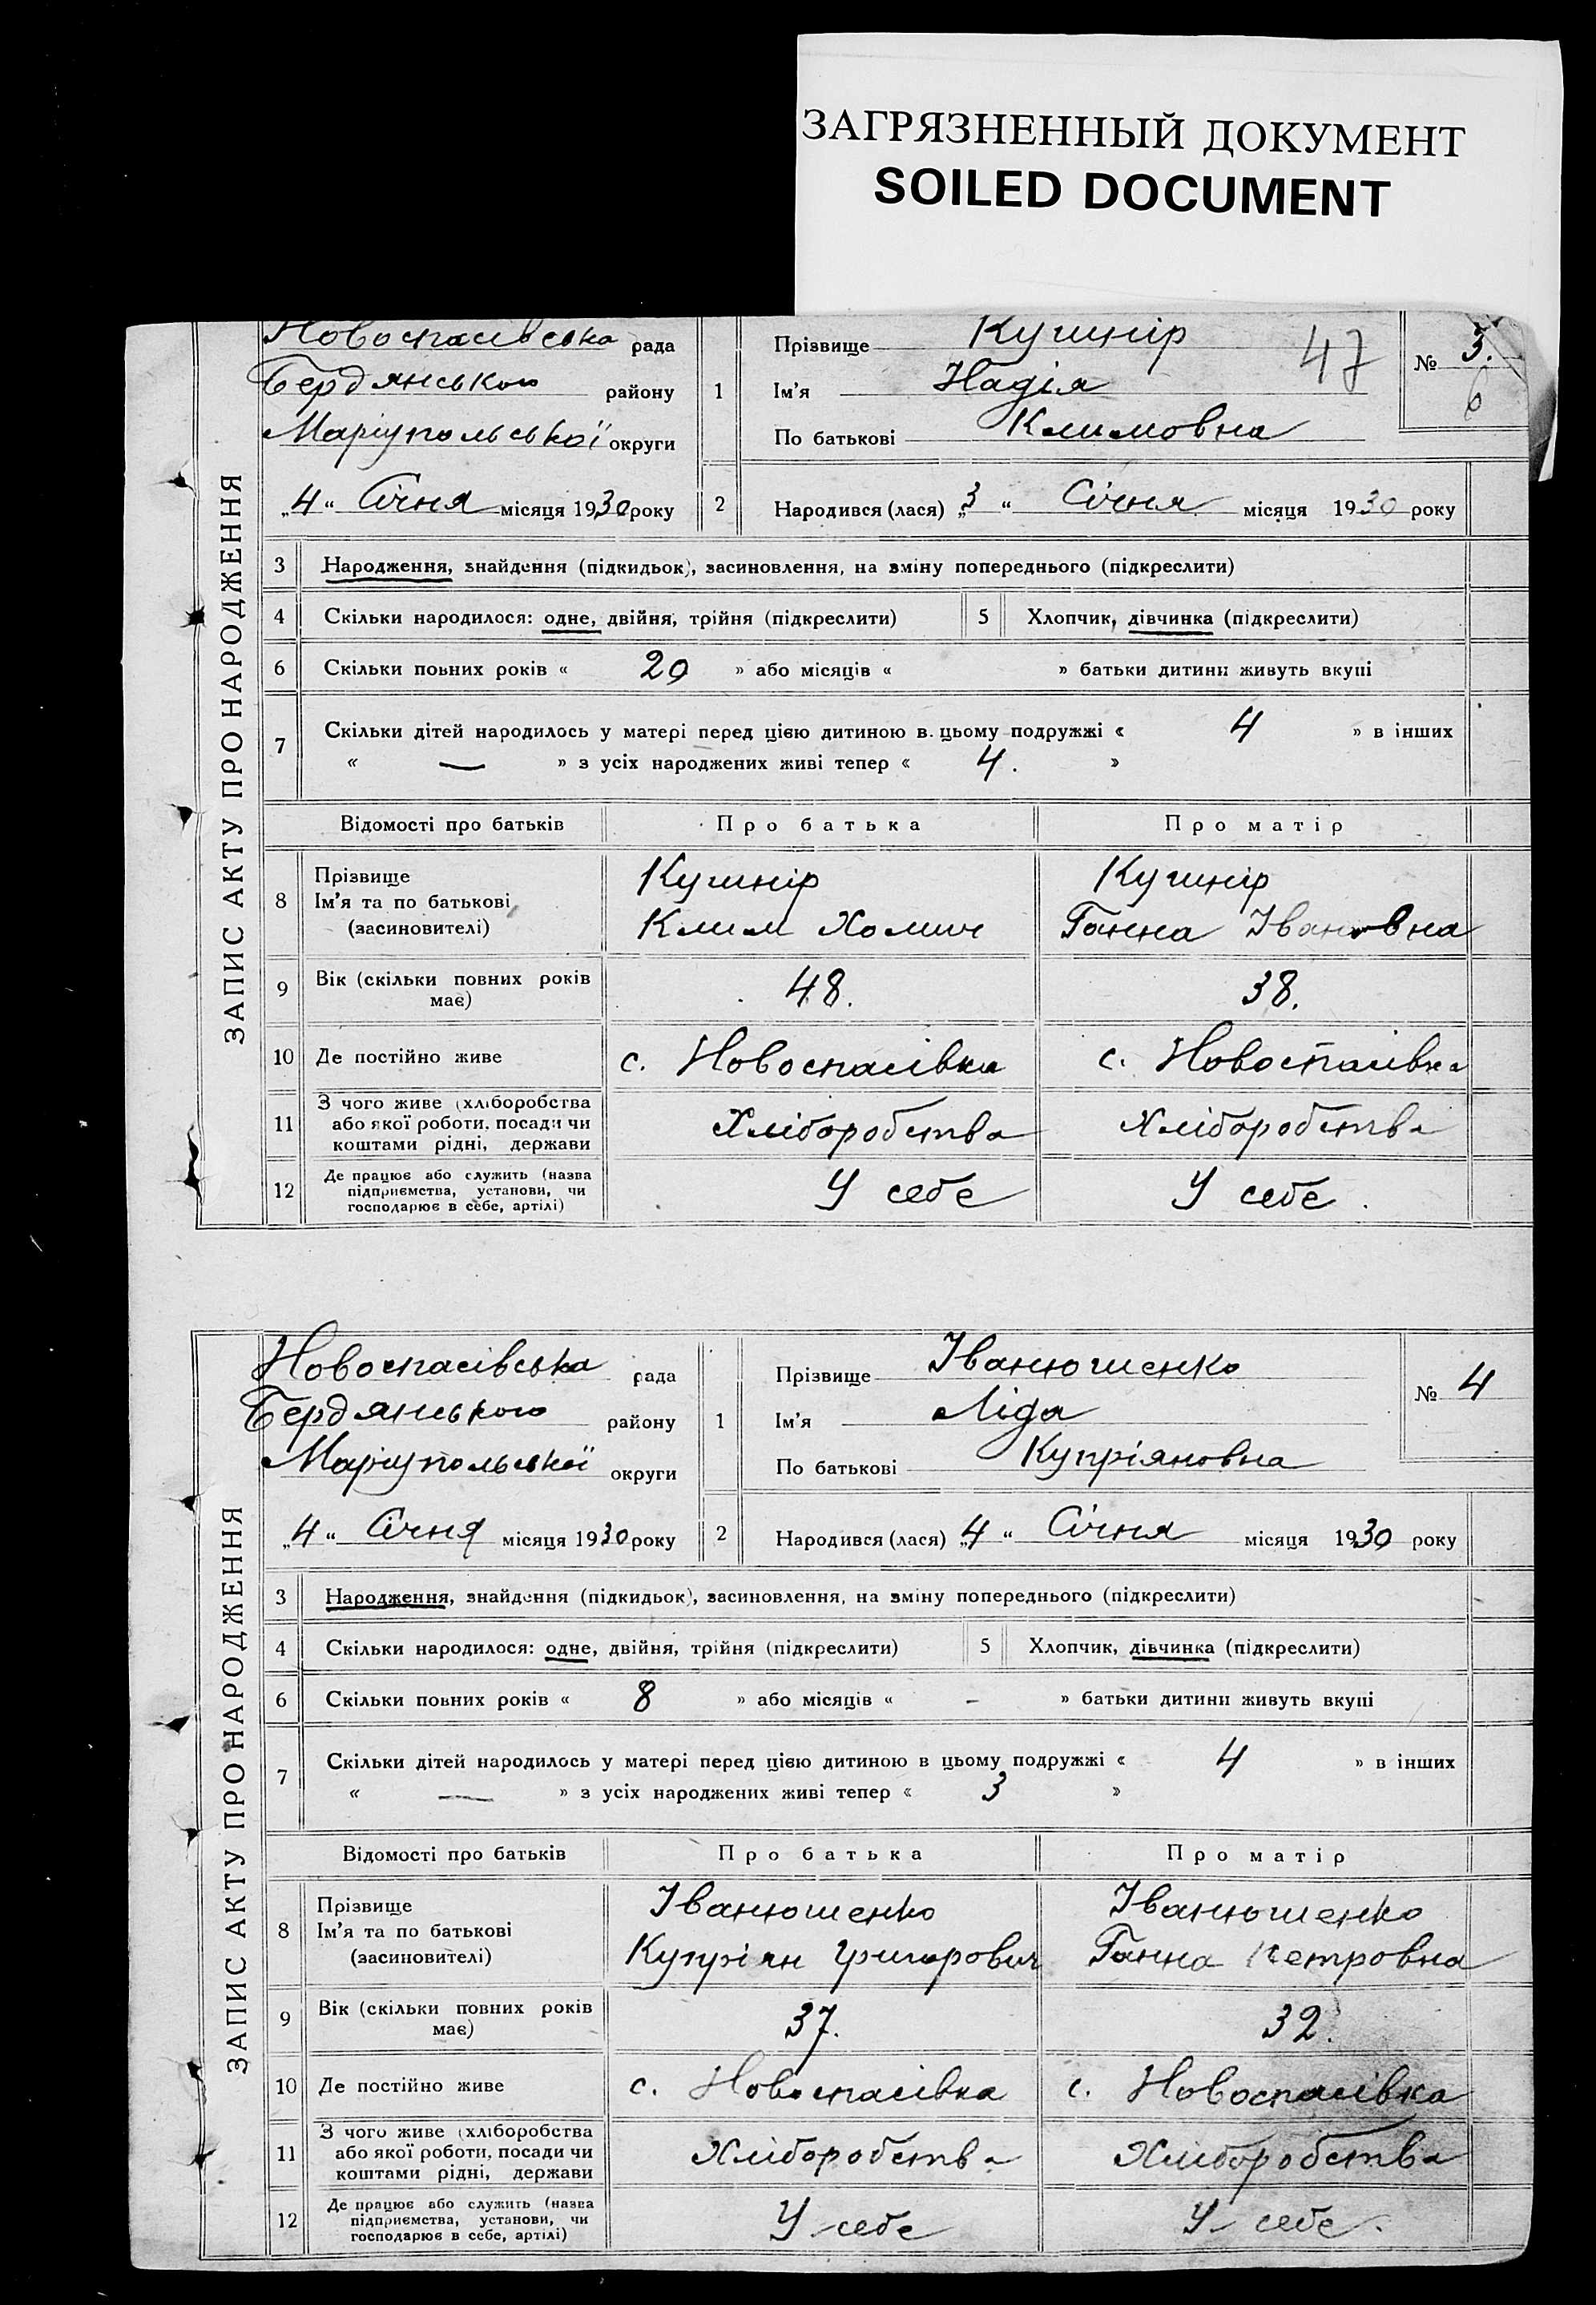 ЗАГРЯЗНЕННЫЙ ДОКУМЕНТ
SOILED DOCUMENT
ЗАПИС АКТУ ПРО НАРОДЖЕННЯ
Новоспасівська рада
Бердянського району
Маріупольської округи
„4“ Січня місяця 1930 року
1 Прізвище Кушнір
Ім'я Надія
По батькові Климовна
47
№ 3.
6
2 Народився (лася) „3“ Січня місяця 1930 року
3 Народження, знайдення (підкидьок), засиновлення, на зміну попереднього (підкреслити)
4 Скільки народилося: одне, двійня, трійня (підкреслити) 5 Хлопчик, дівчинка (підкреслити)
6 Скільки повних років « 20 » або місяців « » батьки дитини живуть вкупі
7 Скільки дітей народилось у матері перед цією дитиною в цьому подружжі « 4 » в інших
« — » з усіх народжених живі тепер « 4. »
Відомості про батьків Про батька Про матір
8 Прізвище Кушнір Кушнір
Ім'я та по батькові Клим Хомич Ганна Івановна
(засиновителі)
9 Вік (скільки повних років має) 48. 38.
10 Де постійно живе с. Новоспасівка с. Новоспасівка
11 З чого живе (хліборобства
або якої роботи, посади чи Хліборобства Хліборобства
коштами рідні, держави
12 Де працює або служить (назва
підприємства, установи, чи У себе У себе.
господарює в себе, артілі)
ЗАПИС АКТУ ПРО НАРОДЖЕННЯ
Новоспасівська рада
Бердянського району
Маріупольської округи
„4“ Січня місяця 1930 року
1 Прізвище Іванюшенко
Ім'я Ліда
По батькові Купріяновна
№ 4
2 Народився (лася) „4“ Січня місяця 1930 року
3 Народження, знайдення (підкидьок), засиновлення, на зміну попереднього (підкреслити)
4 Скільки народилося: одне, двійня, трійня (підкреслити) 5 Хлопчик, дівчинка (підкреслити)
6 Скільки повних років « 8 » або місяців « - » батьки дитини живуть вкупі
7 Скільки дітей народилось у матері перед цією дитиною в цьому подружжі « 4 » в інших
« — » з усіх народжених живі тепер « 3 »
Відомості про батьків Про батька Про матір
8 Прізвище Іванюшенко Іванюшенко
Ім'я та по батькові Купріян Григорович Ганна Петровна
(засиновителі)
9 Вік (скільки повних років має) 37. 32.
10 Де постійно живе с. Новоспасівка с. Новоспасівка
11 З чого живе (хліборобства
або якої роботи, посади чи Хліборобства Хліборобства
коштами рідні, держави
12 Де працює або служить (назва
підприємства, установи, чи У себе У себе.
господарює в себе, артілі)